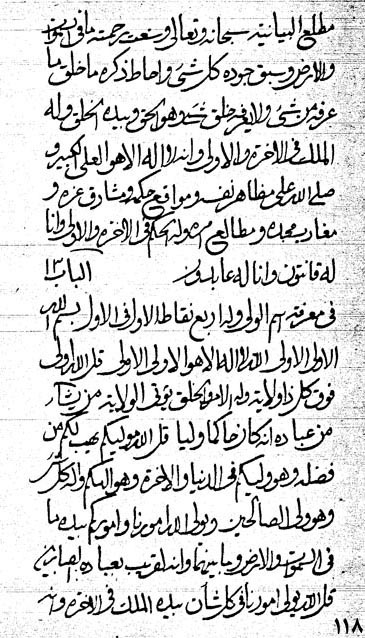 مطلع البیانیته سبحانه وتعالى وسعت رحمته ما فی السموات
والارض وسبق جوده كل شئ واحاط ذكره ما خلق بما
عرفه من شئ ولا یغر خلق شئ وهو الحق وبیده الخلق وله
الملك فی الاخرة والاولى وانه لا اله الا هو العلى الكبیر و
صلى الله على مظاهر نفسه ومواقع حكمه ومشارق عزه و
مغارب مجده ومطالع امره وله الحكم فی الاخرة والاولى وانا
له قانتون وانا له عابدون الباب
فی معرفة اسم الولى وله اربع نقاط الاول فی الاول بسم الله
الاولى الاولى الله لا اله الا هو الاولى الاولى قل الله اولى
فوق كل ذا ولایة وله الامر والخلق یؤتى الولایة من یشاء
من عباده انه كان حاكما ولیا قل الله ولیكم یهب لكم من
فضله وهو ولیكم فی الدنیا والاخرة وهو الهكم واله كل شئ
وهو ولى الصالحین ویولى الله امورنا واموركم بیده ما
فی السموات والارض وما بینهما وانه لقریب بعباده الصابرین
قل الله یولى امورنا فی كل شأن بیده الملك فی الاخرة وانه
١١٨